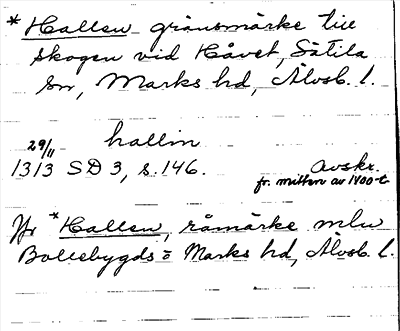 *Hallen gränsmärke till
skogen vid Håvet, Sätila
sn, Marks hd, Älvsb. l.
29/11 hallin
1313 SD 3, s. 146. Avskr.
fr. mitten av 1400-t.
Jfr *Hallen, råmärke mln
Bollebygds o Marks hd, Älvsb. l.